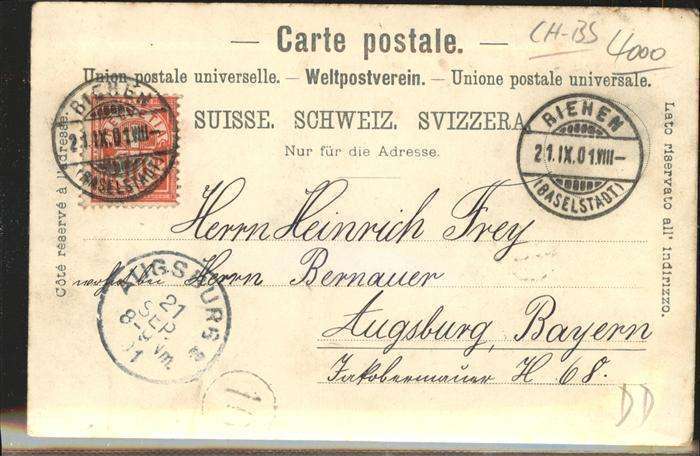 CH-BS
4000
Carte postale.
Union postale universelle. — Weltpostverein. — Unione postale universale.
SUISSE. SCHWEIZ. SVIZZERA.
Nur für die Adresse.
Côté réservé à l'adresse.
Lato riservato all' indirizzo.
RIEHEN
21.IX.01.VIII–
(BASELSTADT)
RIEHEN
21.IX.01.VIII–
(BASELSTADT)
Herrn Heinrich Frey
Herrn Bernauer
Augsburg, Bayern
Jakobermauer H 68.
AUGSBURG
21
SEP.
8-9 Vm.
01
DD